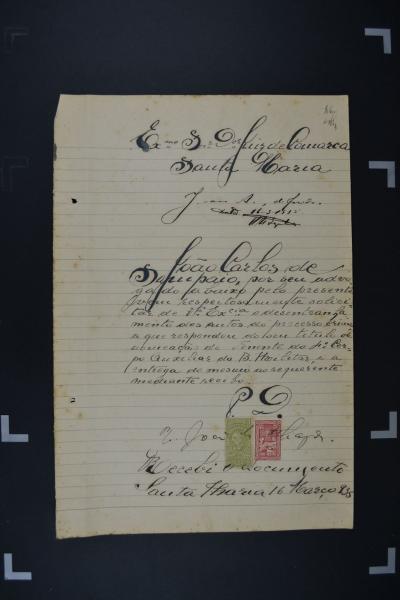 Exmo Sr. Dr. Juiz de Comarca
Santa Maria
João Carlos de
Sampaio, por seu advo-
gado abaixo pelo presente
vem respeitosamente solici-
tar de V. Excia o desentranha-
mento dos autos do processo crime
a que respondeu do seu titulo de
nomeação de Tenente do 1º Cor-
po Auxiliar da B. Militar, e a
entrega do mesmo ao requerente
mediante recibo.
P. D.
Recebi o documento
Santa Maria 16 Março